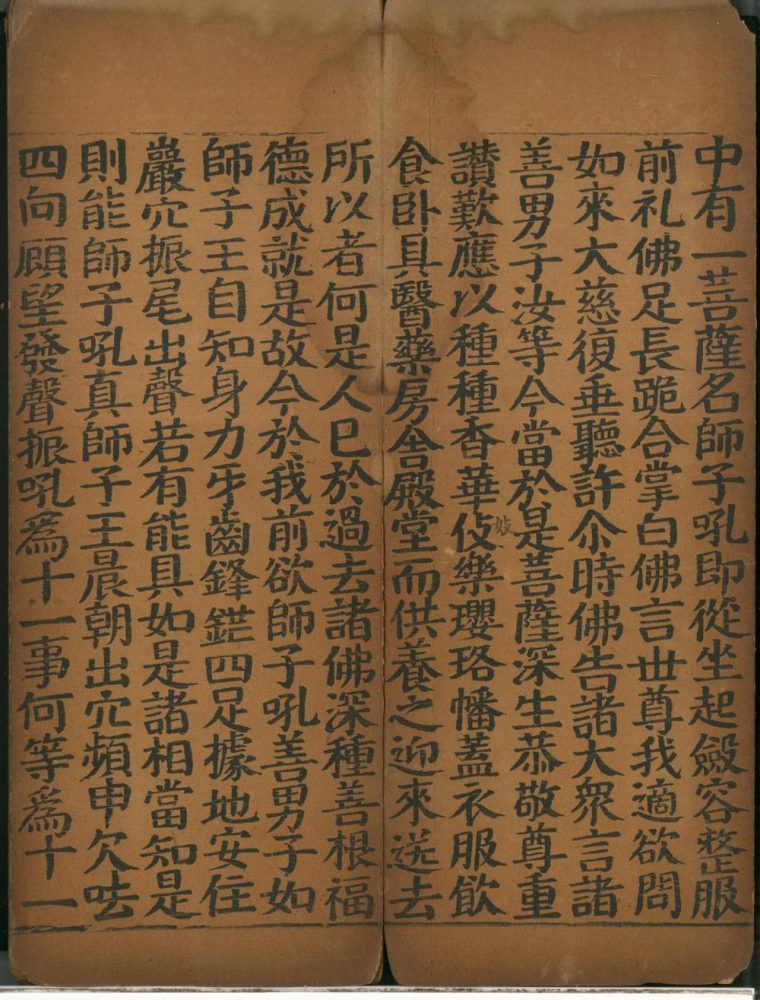 中有一菩薩名師子吼即從坐起斂容整服
前礼佛足長跪合掌白佛言世尊我適欲問
如來大慈復垂聽許尒時佛告諸大衆言諸
善男子汝等今當於是菩薩深生恭敬尊重
讃歎應以種種香華伎樂瓔珞幡蓋衣服飲
食卧具醫藥房舍殿堂而供養之迎來送去
所以者何是人已於過去諸佛深種善根福
德成就是故今於我前欲師子吼善男子如
師子王自知身力牙齒鋒鋩四足據地安住
巖穴振尾出聲若有能具如是諸相當知是
則能師子吼真師子王晨朝出穴頻申欠呿
四向顧望發聲振吼爲十一事何等爲十一